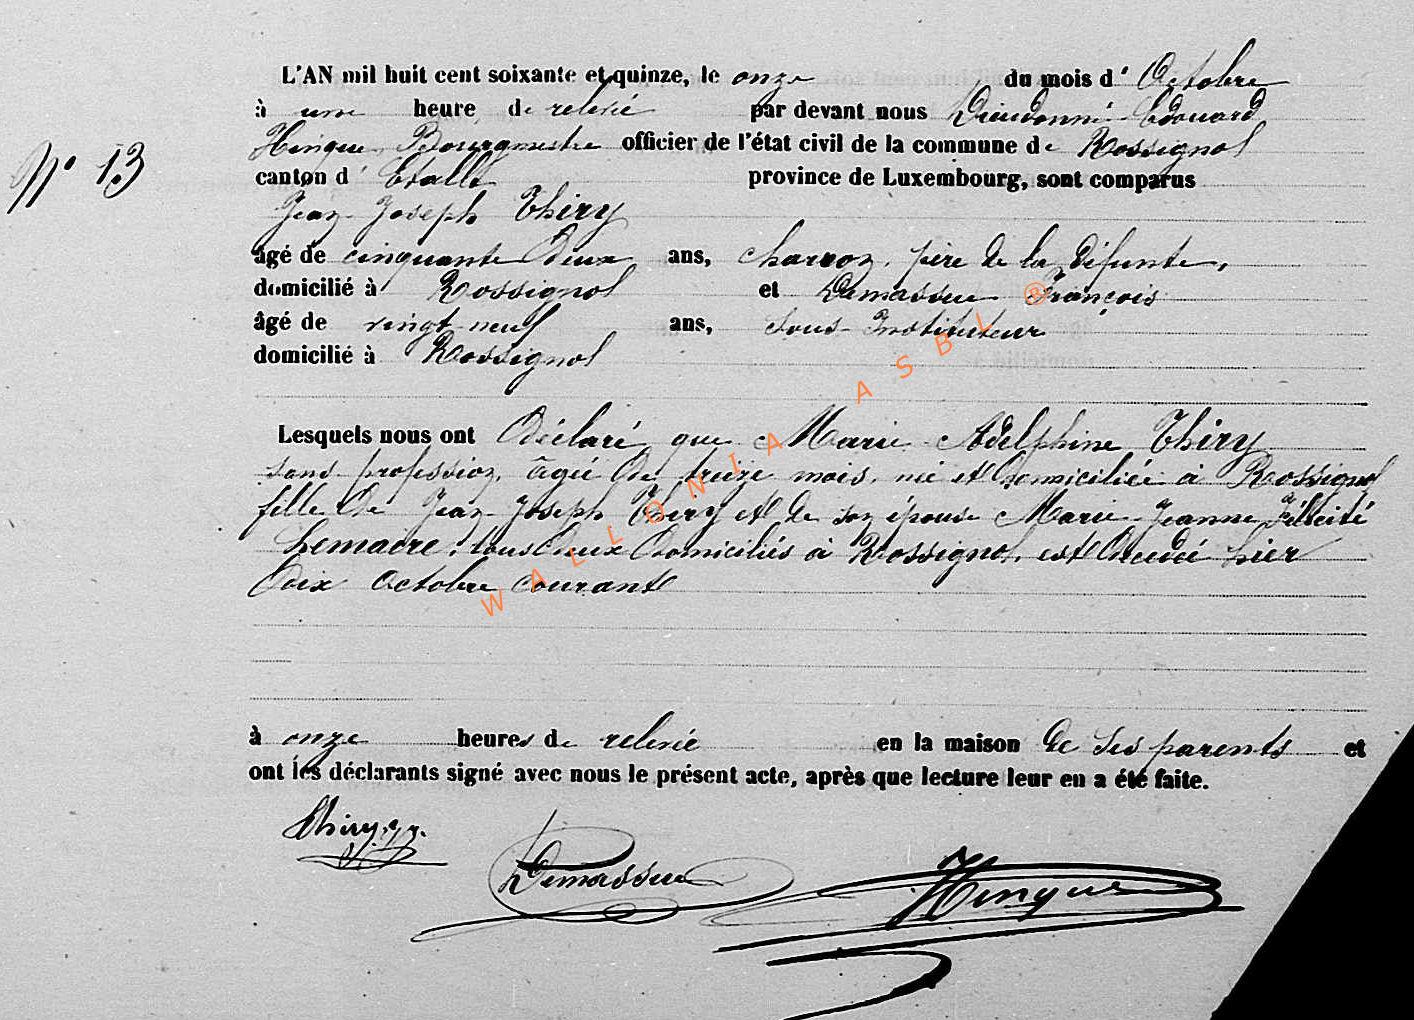 L'AN mil huit cent soixante et quinze, le onze du mois d' Octobre
à une heure de relevée par devant nous Dieudonné Edouard
Hinque, Bourgmestre officier de l'état civil de la commune de Rossignol
N° 13
canton d' Etalle province de Luxembourg, sont comparus
Jean Joseph Thiry
âgé de cinquante deux ans, charron, père de la défunte,
domicilié à Rossignol et Demasseu François
âgé de vingt neuf ans, sous-Instituteur
domicilié à Rossignol
Lesquels nous ont déclaré que Marie Adelphine Thiry
sans profession, âgée de treize mois, née et domiciliée à Rossignol
fille de Jean Joseph Thiry et de son épouse Marie Jeanne Félicité
Lemacre, tous deux domiciliés à Rossignol, est décédée hier
dix Octobre courant
à onze heures de relevée en la maison de ses parents et
ont les déclarants signé avec nous le présent acte, après que lecture leur en a été faite.
Thiry J.J.
Demasseu
Hinque
WALLONIA ASBL ®